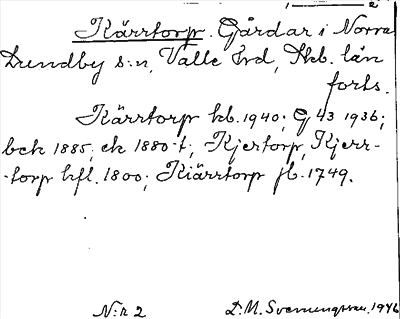 Kärrtorp. Gårdar i Norra
Lundby s:n, Valle hrd, Skb. län
forts.
Kärrtorp kb. 1940; G 43 1936;
bek 1885; ek 1880-t; Kjertorp, Kjerr-
-torp hfl. 1800; Kiärrtorp jb. 1749.
N:r 2
D.M. Svenungsson. 1946